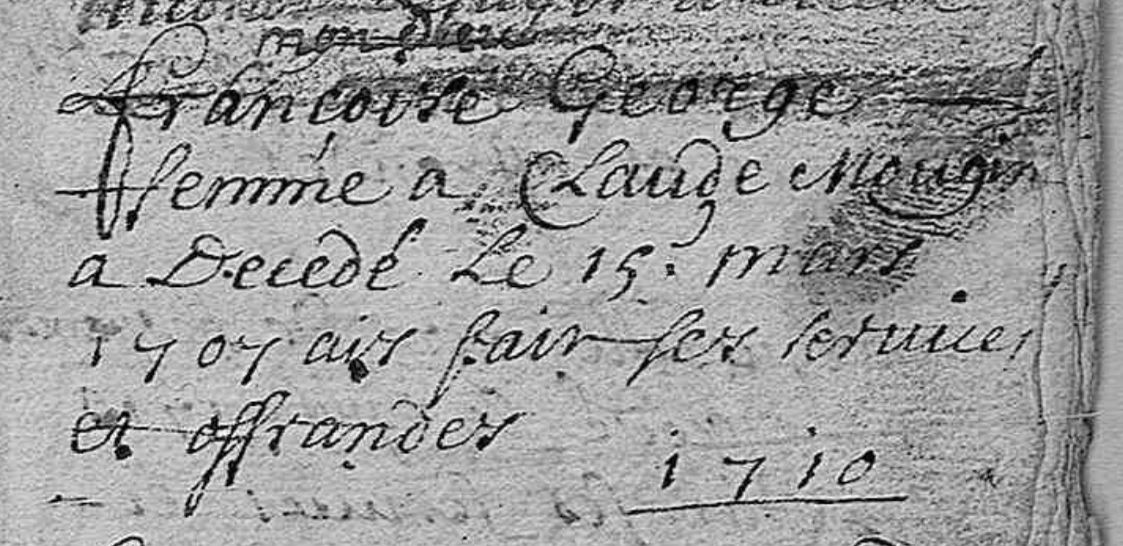 mon dieu
françoise George
femme a Claude Mougin
a Decedé Le 15. mars
1707 ais fait ses seruices
et offrandes
1710